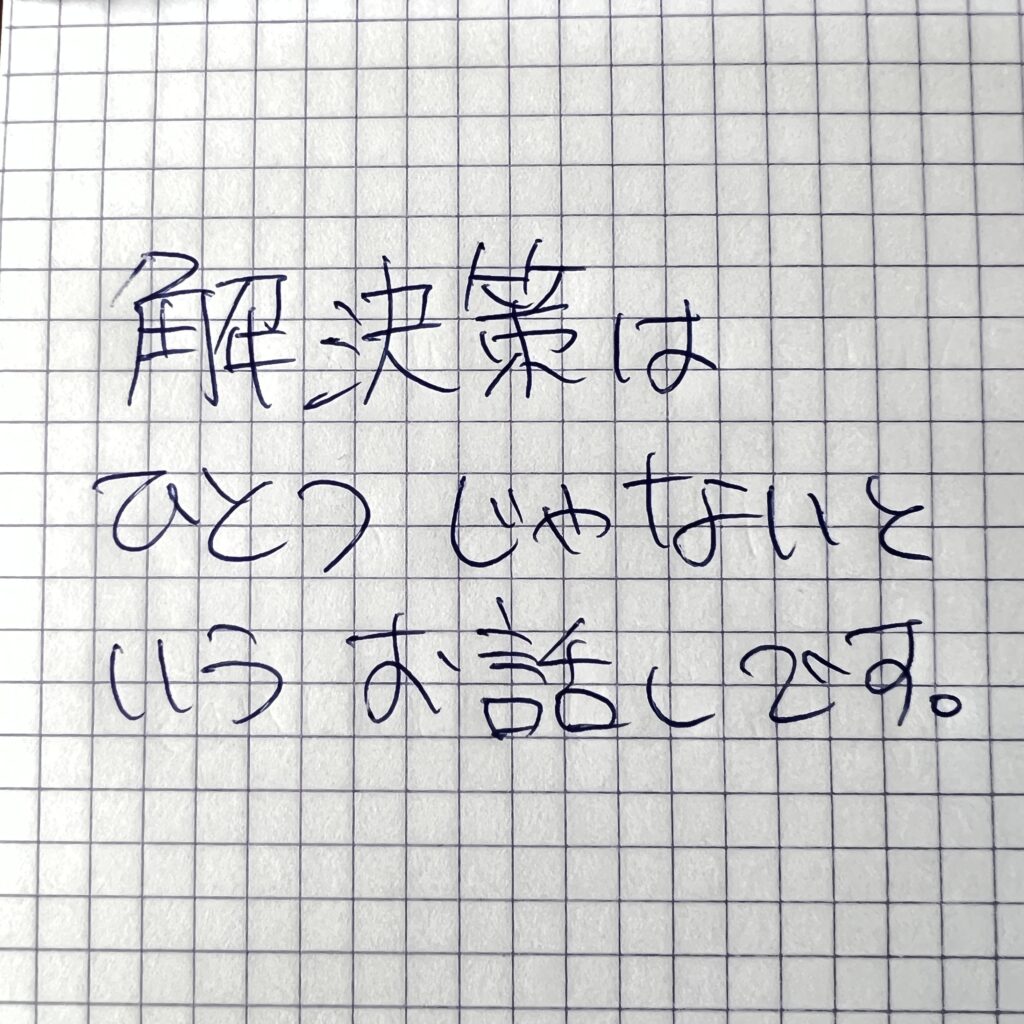 解決策は
ひとつじゃないと
いうお話しです。